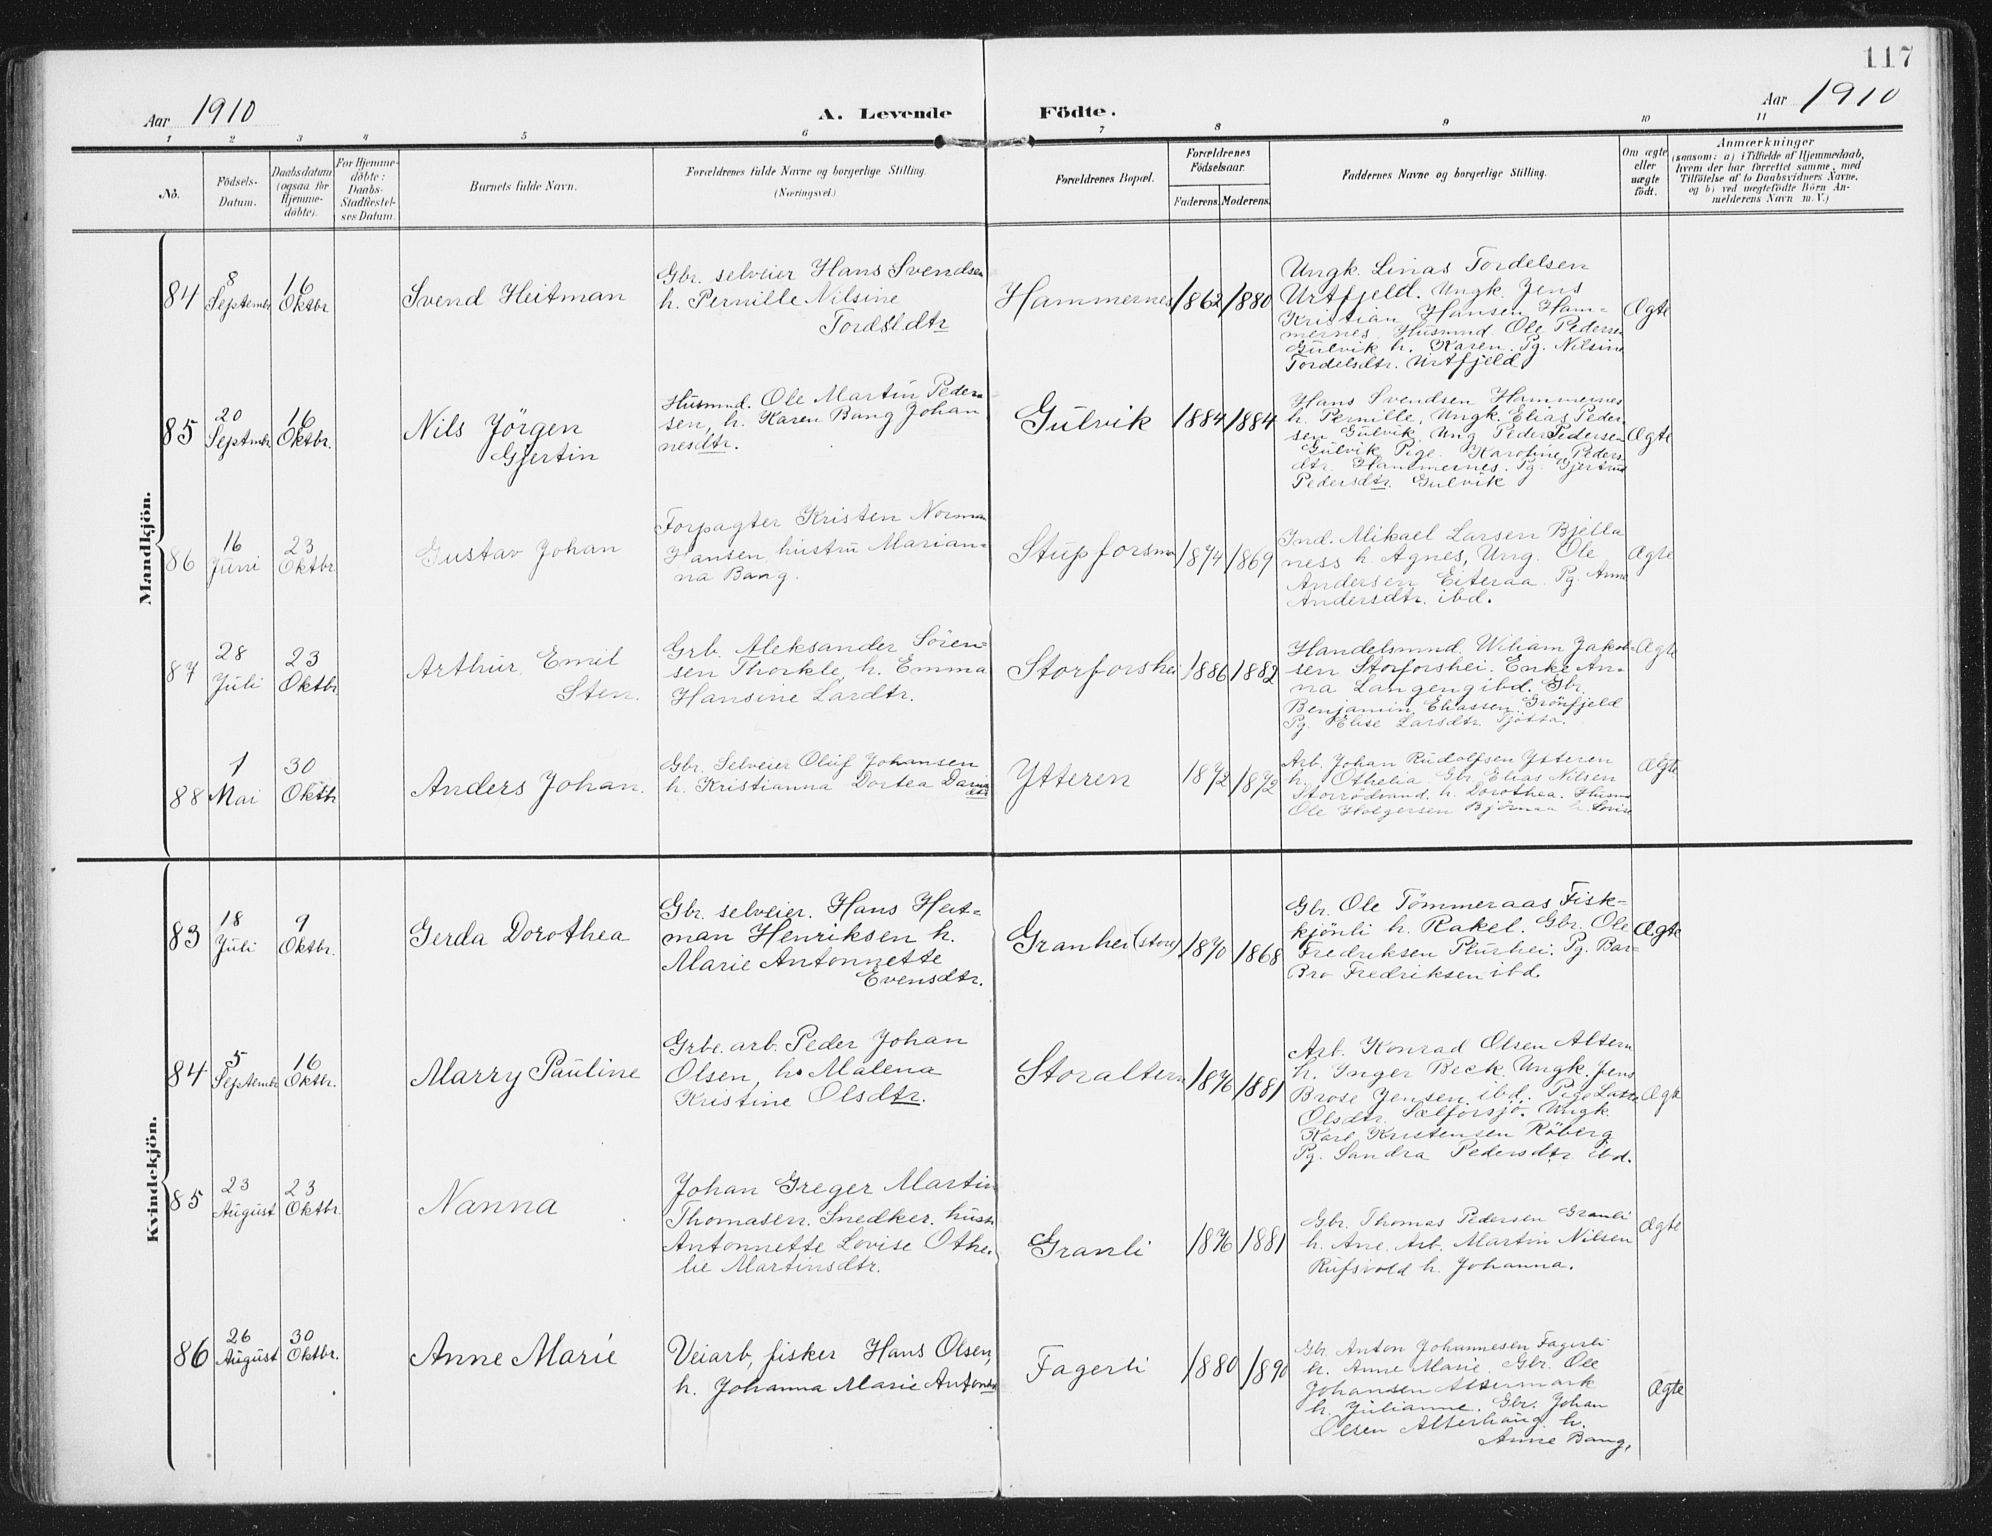 117
Aar 1910
A. Levende Födte.
Aar 1910
1 2 3 4 5 6 7 8 9 10 11
No.
Födsels-
Datum.
Daabsdatum
(ogsaa for
Hjemme-
döbte).
For Hjemme-
döbte:
Daabs-
Stadfæstel-
ses Datum.
Barnets fulde Navn.
Forældrenes fulde Navne og borgerlige Stilling.
(Næringsvei.)
Forældrenes Bopæl.
Forældrenes
Födselsaar.
Faderens. Moderens.
Faddernes Navne og borgerlige Stilling.
Om ægte
eller
uægte
födt.
Anmærkninger
(saasom: a) i Tilfælde af Hjemmedaab,
hvem der har forrettet samme, med
Tilföielse af to Daabsvidners Navne,
og b) ved uægtefödte Börn An-
melderens Navn m. V.)
Mandkjön.
84
8
Septembr
16
Oktbr
Svend Heitman
Gbr. selveier Hans Svendsen
h. Pernille Nilsine
Tordsldtr
Hammernes
1862
1880
Ungk. Linas Tordelsen
Urtfjeld. Ungk. Jens
Kristian Hansen Ham-
mernes, Husmnd Ole Pedersen
Gulvik h. Karen. Pg. Nilsine
Tordelsdtr. Urtfjeld
Ægte
85
20
Septmbr
16
Oktbr.
Nils Jörgen
Gjertin
Husmnd. Ole Martin Peder-
sen, h. Karen Bang Johan
nesdtr.
Gulvik
1884
1884
Hans Svendsen Hammernes
h. Pernille, Ungk. Elias Peder-
sen Gulvik, Ung Peder Pedersen
Gulvik Pige Karoline Peders-
dtr. Hammernes. Pg. Gjertrud
Pedersdtr. Gulvik
Ægte
86
16
Juni
23
Oktbr
Gustav Johan
Forpagter Kristen Norman
Hansen, hustru Marian-
na Bang.
Stupforsmo
1874
1869
Ind. Mikael Larsen Bjella
ness h. Agnes, Ung. Ole
Andersen Eiteraa. Pg. Anne
Andersdtr. ibd.
Ægte
87
28
Juli
23
Oktbr
Arthur Emil
Sten.
Grb. Aleksander Sören-
sen Thorkle, h. Emma
Hansine Lardtr.
Storforshei
1886
1882
Handelsmnd. Wiliam Jakob-
sen Storforshei. Enke An-
na Langeng ibd. Gbr.
Benjamin Eliassen Grönfjeld
Pg. Elise Larsdtr. Tjötta.
Ægte
88
1
Mai
30
Oktbr
Anders Johan.
Gbr. Selveier Oluf Johansen
h. Kristianna Dortea
Ytteren
1872
1872
Arb. Johan Rudolfsen Ytteren
h. Othelia. Gbr Elias Nilsen
Storrödvand h. Dorothea. Husmd
Ole Holgersen Björnaa h. Lovise
Ægte
Kvindekjön.
83
18
Juli
9
Oktbr.
Gerda Dorothea
Gbr. selveier. Hans Heit-
man Henriksen h.
Marie Antonnette
Evensdtr.
Granhei (store)
1870
1868
Gbr. Ole Tömmeraas Fisk-
kjönli h. Rakel. Gbr. Ole
Fredriksen Plurhei. Pg. Bar-
Bro Fredriksen ibd.
Ægte
84
5
Septembr
16
Oktbr.
Marry Pauline
Grbe. arb. Peder Johan
Olsen, h. Malena
Kristine Olsdtr.
Storaltern
1876
1881
Arb. Konrad Olsen Altern
h. Inger Beck, Ungk. Jens
Brose Jensen ibd. Pige
Olsdtr. Sælforsjö. Ungk.
Karl Kristensen Röberg
Pg. Sandra Pedersdtr ibd.
Ægte
85
23
August
23
Oktbr.
Nanna
Johan Greger Martin
Thomasen. Snedker. hustr
Antonnette Lovise Othe-
lie Martinsdtr.
Granli
1876
1881
Gbr. Thomas Pedersen Granli
h. Ane. Arb. Martin Nilsen
Rufsvold h. Johanna.
Ægte
86
26
August
30
Oktbr.
Anne Marie
Veiarb, fisker Hans Olsen,
h. Johanna Marie
Fagerli
1880
1890
Gbr Anton Johannesen Fagerli
h. Anne Marie. Gbr. Ole
Johansen Altermark
h. Julianne. Gbr. Johan
Olsen Alterhaug. h.
Anne Bang.
Ægte